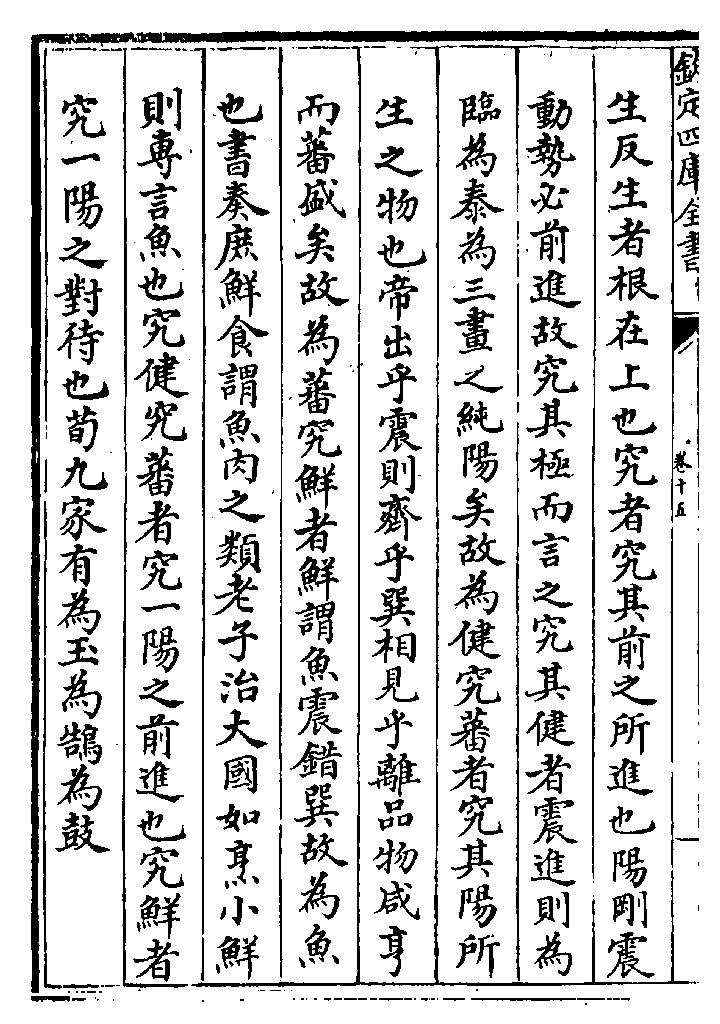 欽定四庫全書
卷十五
生反生者根在上也究者究其前之所進也陽剛震
動勢必前進故究其極而言之究其健者震進則為
臨為泰為三畫之純陽矣故為健究蕃者究其陽所
生之物也帝出乎震則齊乎巽相見乎離品物咸亨
而蕃盛矣故為蕃究鮮者鮮謂魚震錯巽故為魚
也書奏庶鮮食謂魚肉之類老子治大國如烹小鮮
則專言魚也究健究蕃者究一陽之前進也究鮮者
究一陽之對待也荀九家有為玉為鵠為鼓